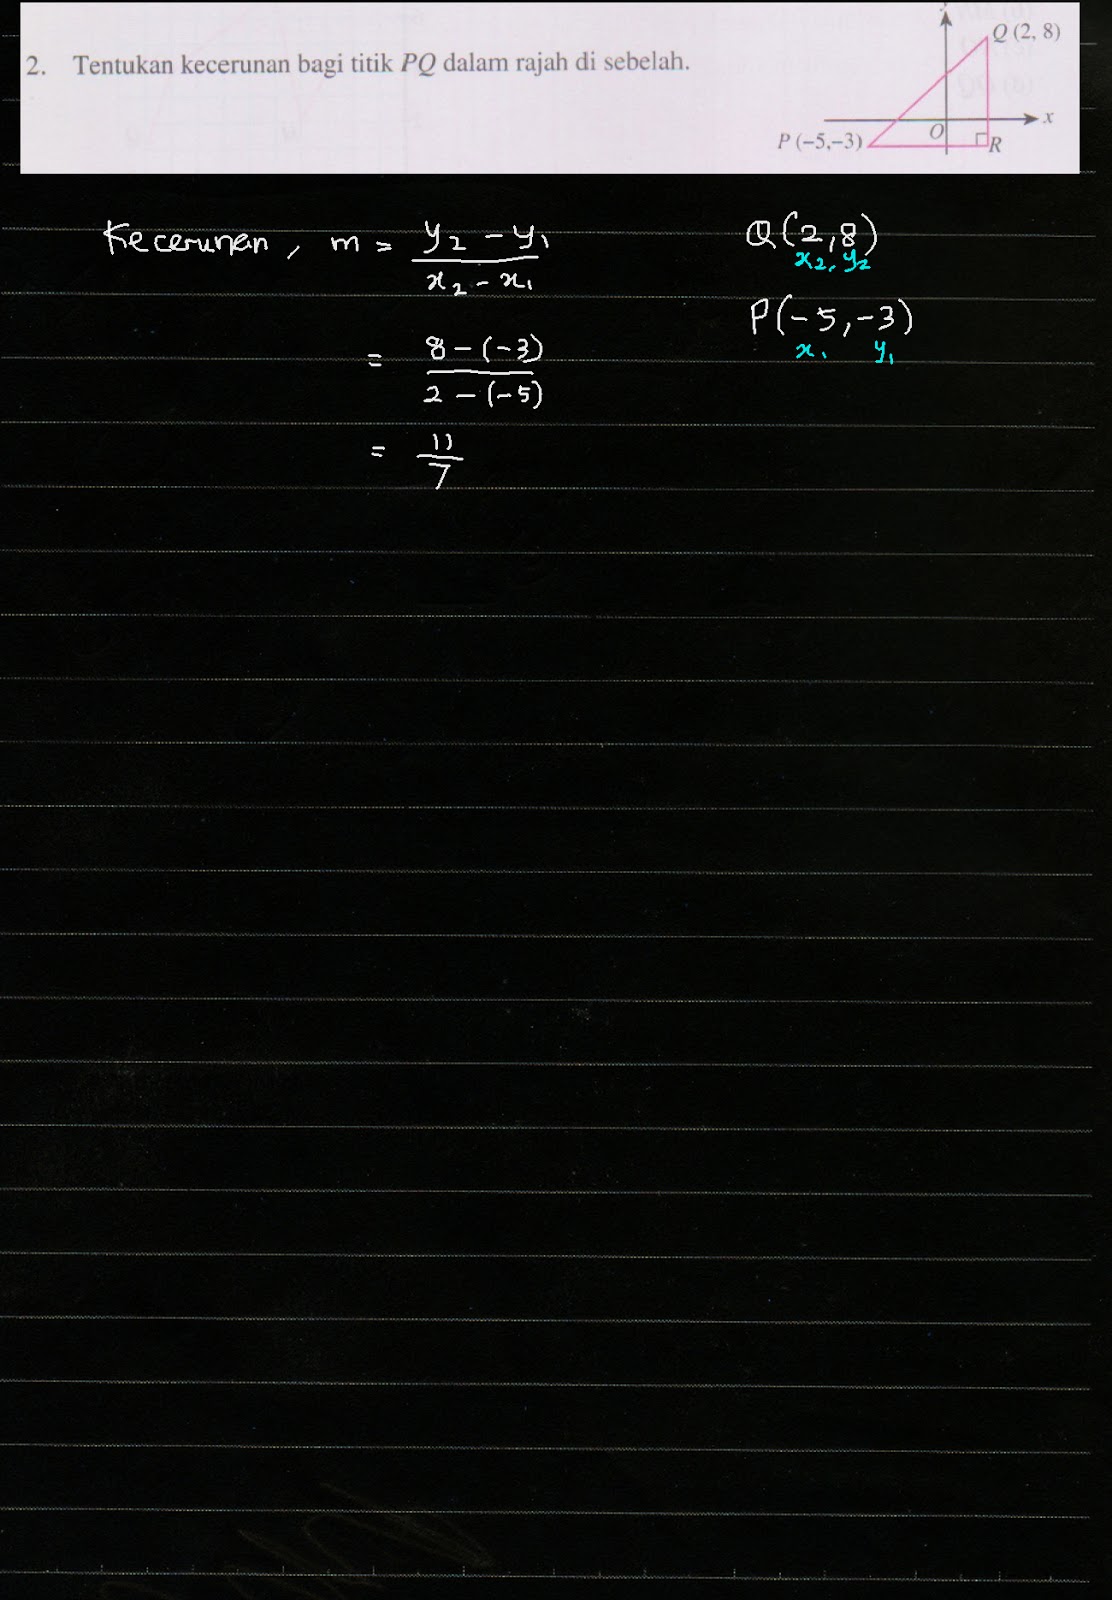 2. Tentukan kecerunan bagi titik PQ dalam rajah di sebelah.
Q (2, 8)
x
O
P (−5,−3)
R
Kecerunan, m = y₂ − y₁ / x₂ − x₁
= 8 − (−3) / 2 − (−5)
= 11 / 7
Q(2,8)
x₂, y₂
P(−5,−3)
x₁ y₁